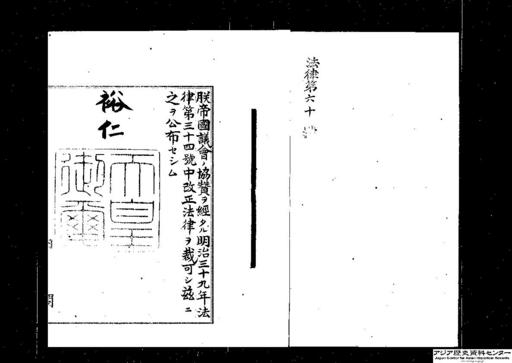 法律第六十
朕帝國議會ノ協贊ヲ經タル明治三十九年法
律第三十四號中改正法律ヲ裁可シ茲ニ
之ヲ公布セシム
裕仁
天皇御璽
アジア歴史資料センター
Japan Center for Asian Historical Records